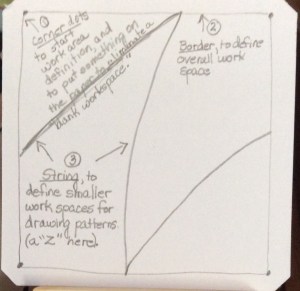 ①
Corner dots
to start
work area
definition, and
to put something on
the paper to eliminate a
"blank workspace."
②
Border, to define
overall work
space
③
String, to
define smaller
work spaces for
drawing patterns
(a "Z" here).